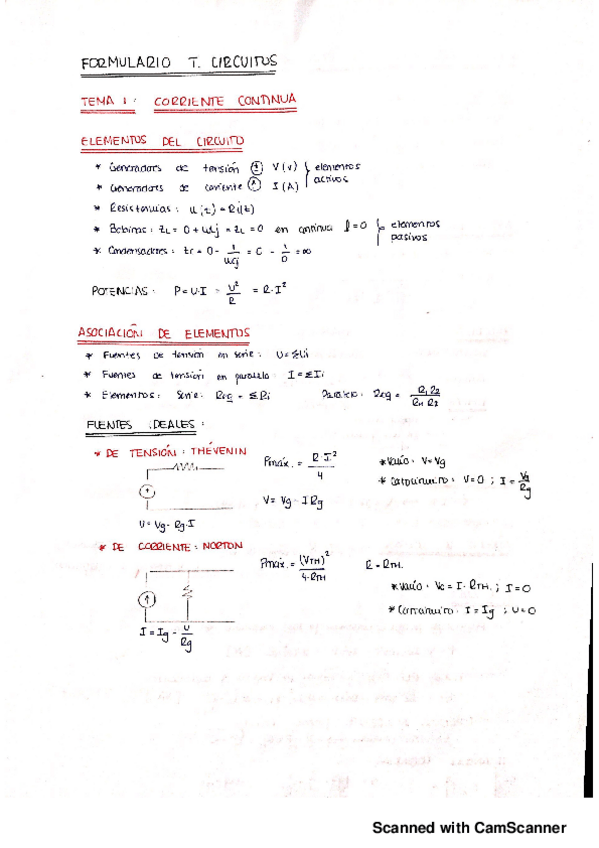 FORMULARIO T. CIRCUITOS
TEMA 1: CORRIENTE CONTINUA
ELEMENTOS DEL CIRCUITO
* Generadores de tensión V(v) } elementos activos
* Generadores de corriente I(A)
* Resistencias: u(t) = Ri(t)
* Bobinas: ZL = 0 + wLj = ZL = 0 en continua } elementos pasivos
* Condensadores: Zc = 0 - 1/wcj = 0 - 1/0 = ∞
POTENCIAS: P = U·I = U²/R = R·I²
ASOCIACIÓN DE ELEMENTOS
* Fuentes de tensión en serie: U = ΣUi
* Fuentes de tensión en paralelo: I = ΣIi
* Elementos: Serie: Req = ΣRi Paralelo: Req = R1 R2/R1+R2
FUENTES IDEALES:
* DE TENSIÓN: THÉVENIN
Pmáx. = R·I²/4
* Vacío: V=Vg
* Cortocircuito: V=0 ; I = Vg/Rg
V = Vg - I Rg
U = Vg - Rg·I
* DE CORRIENTE: NORTON
Pmáx. = (VTH)²/4·RTH
R = RTH.
* Vacío: Vc = I·RTH. ; I=0
* Cortocircuito: I = Ig ; U=0
I = Ig - U/Rg
Scanned with CamScanner